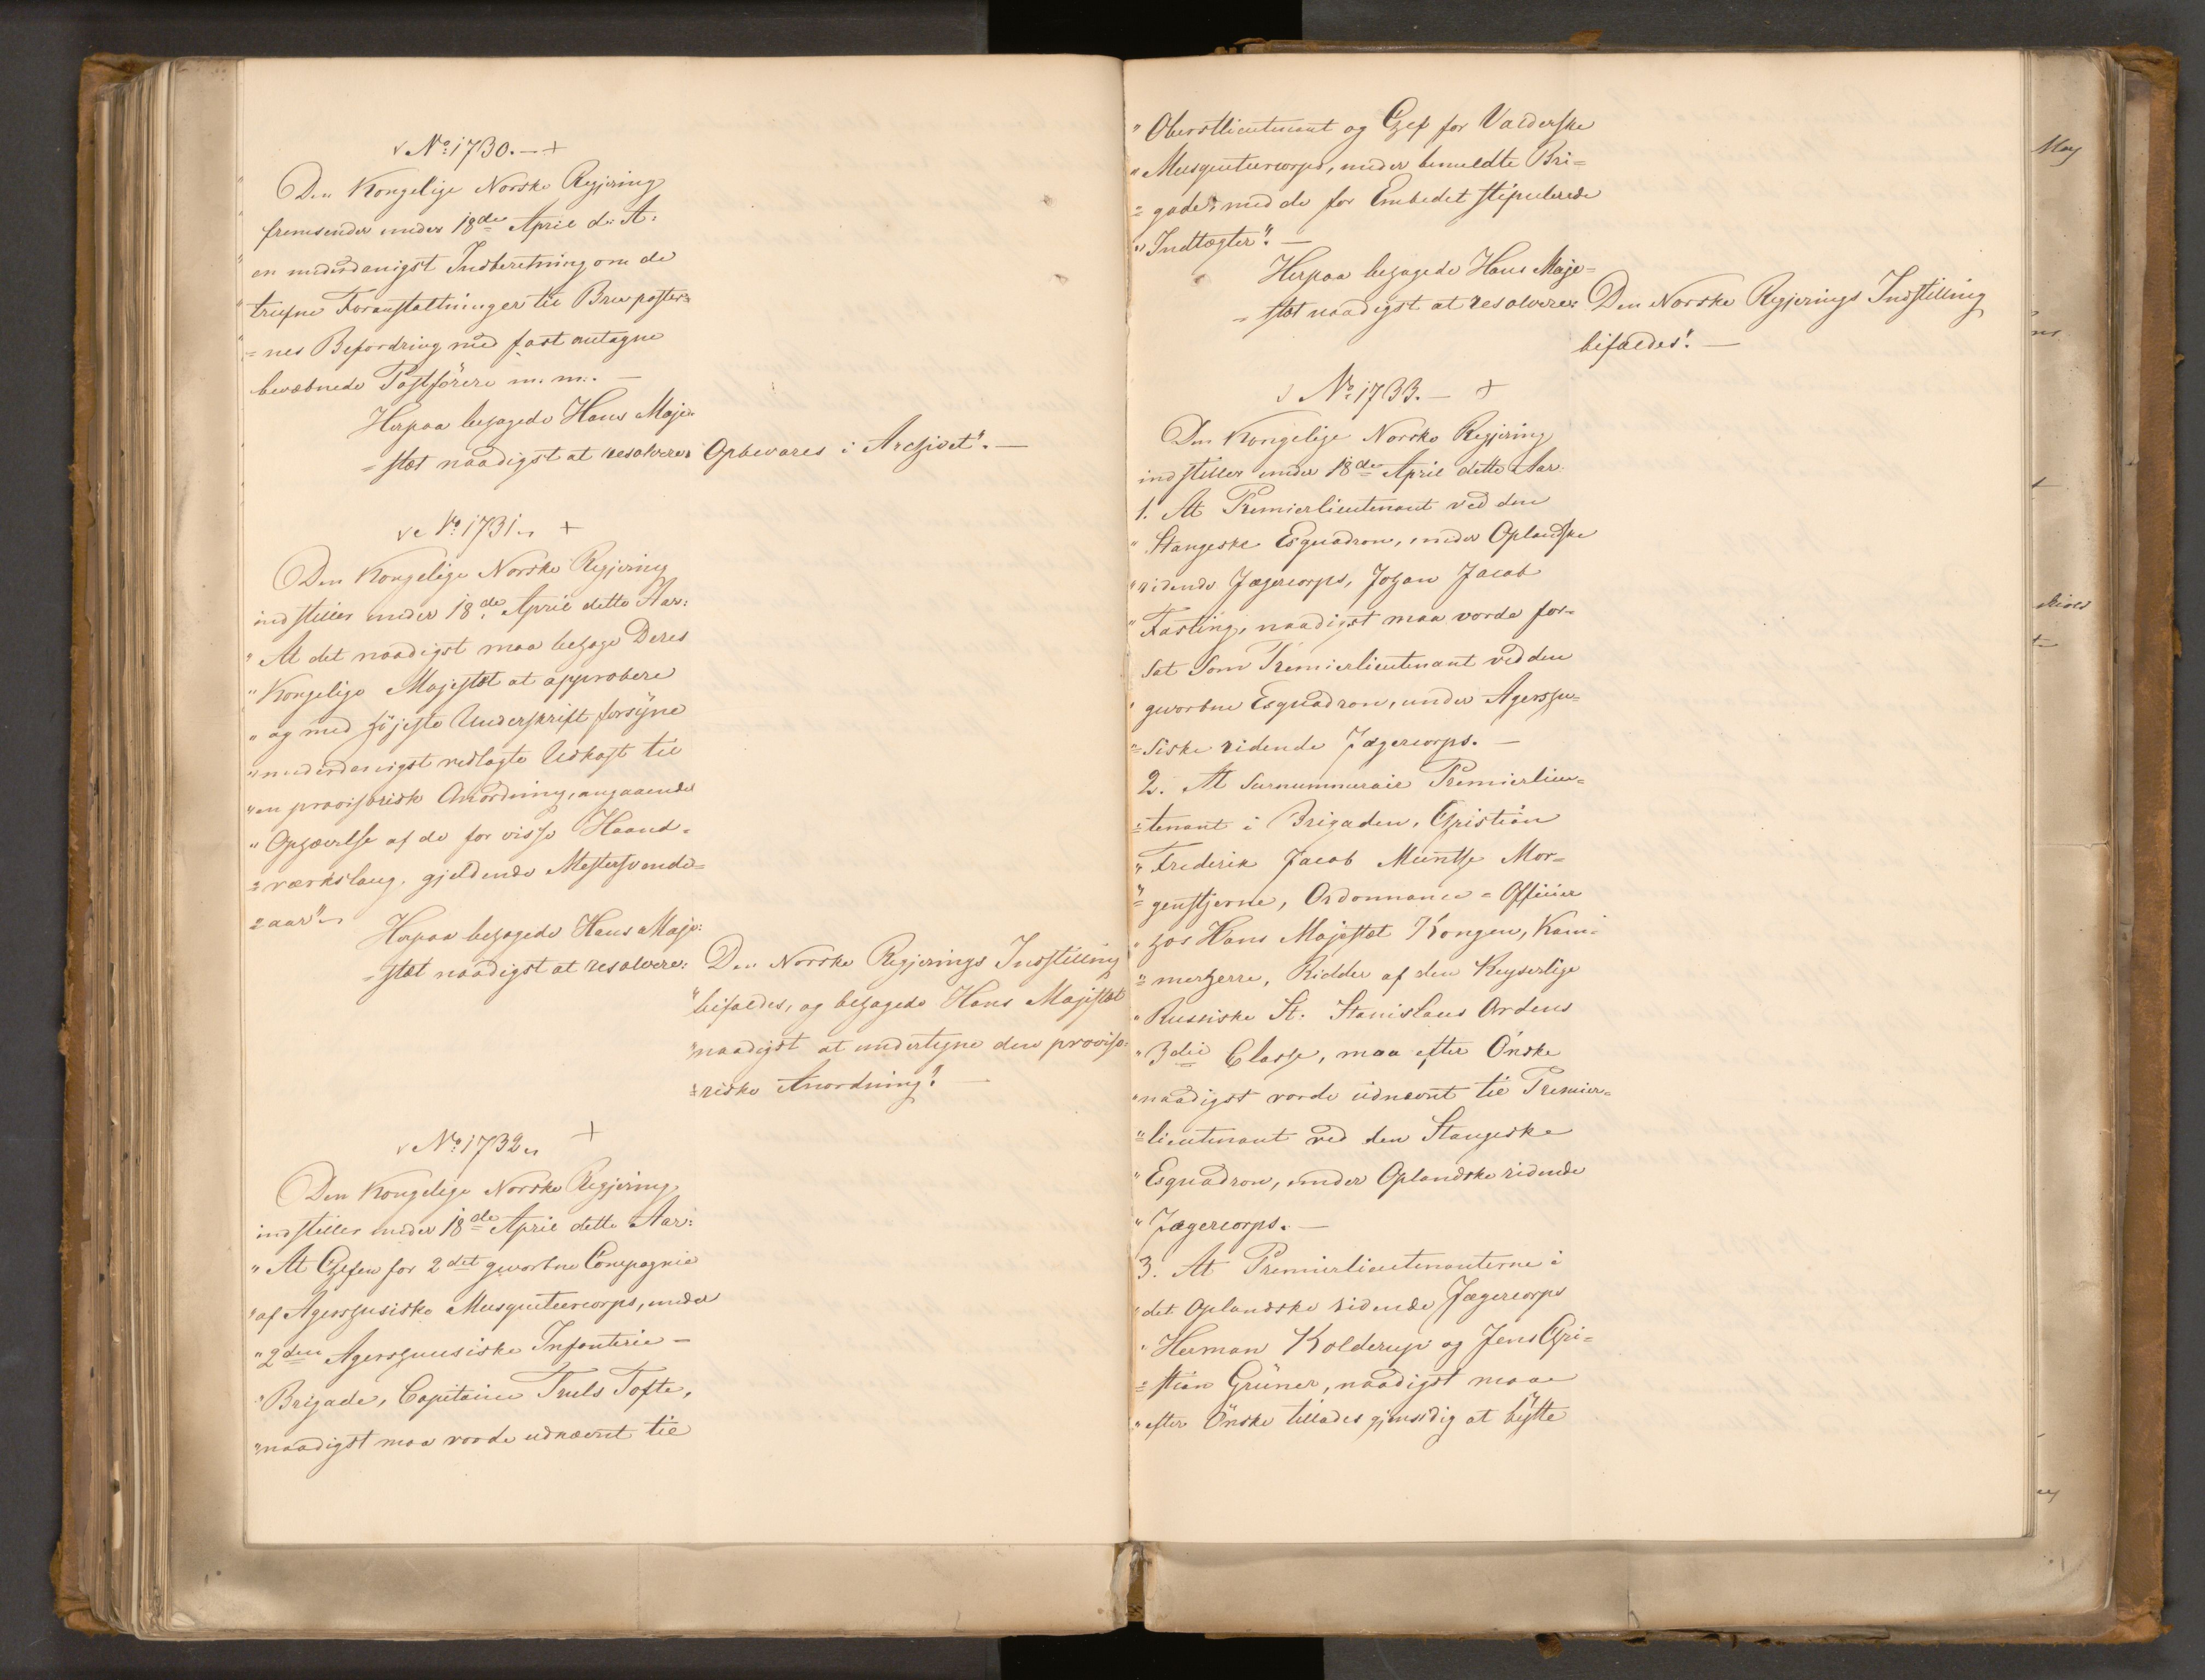 √ No. 1730. — +
Den Kongelige Norske Regjering
fremsender under 18de April d: A:
en underdanigst Indberetning om de
trufne Foranstaltninger til Brevposter=
=nes Befordring med fast antagne
bevæbnede Postførere m. m: —
Herpaa behagede Hans Maje=
=stæt naadigst at resolvere: Opbevares i Archivet". —
√ No. 1731. +
Den Kongelige Norske Regjering
indstiller under 18de April dette Aar:
" At det naadigst maa behage Deres
" Kongelige Majestæt at approbere
" og med Højeste Underskrift forsÿne
" underdanigst vedlagte Udkast til
" en provisorisk Anordning, angaaende
" Ophævelse af de for visse Haand=
=værkslaug gjeldende Mestersvende=
=aar".
Herpaa behagede Hans Maje=
=stæt naadigst at resolvere: Den Norske Regjerings Indstilling
" bifaldes, og behagede Hans Majestæt
" naadigst at undertegne den proviso=
=riske Anordning". —
√ No. 1732. +
Den Kongelige Norske Regjering
indstiller under 18de April dette Aar:
" At Chefen for 2det gevorbne Compagnie
" af Agershusiske Musqueteercorps, under
" 2den Agershuusiske Infanterie —
" Brigade, Capitaine Truls Tofte,
" naadigst maa vorde udnævnt til
" Oberstlieutenant og Chef for Valderske
" Musqueteercorps, under bemeldte Bri=
=gade, med de for Embedet stipulerede
" Indtægter". —
Herpaa behagede Hans Maje=
=stæt naadigst at resolvere: Den Norske Regjerings Indstilling
bifaldes". —
√ No. 1733. — +
Den Kongelige Norske Regjering
indstiller under 18de April dette Aar:
1. At Premierlieutenant ved den
" Stangeske Esquadron, under Oplandske
" ridende Jægercorps, Johan Jacob
" Fasting, naadigst maa vorde for=
sat som Premierlieutenant ved den
" gevorbne Esquadron, under Agershu=
=siske ridende Jægercorps. —
2. At surnummeraie Premierlieu=
=tenant i Brigaden, Christian
" Frederik Jacob Munthe Mor=
=genstjerne, Ordonnance=Officier
" hos Hans Majestæt Kongen, Kam=
=merherre, Ridder af den Keyserlige
" Russiske St. Stanislaus Ordens
" 3die Classe, maa efter Ønske
" naadigst vorde udnævnt til Premier=
=lieutenant ved den Stangeske
" Esquadron, under Oplandske ridende
" Jægercorps. —
3. At Premierlieutenanterne i
" det Oplandske ridende Jægercorps
" Herman Kolderup og Jens Chri=
=stian Grüner, naadigst maae
" efter Ønske tillades gjensidig at bÿtte